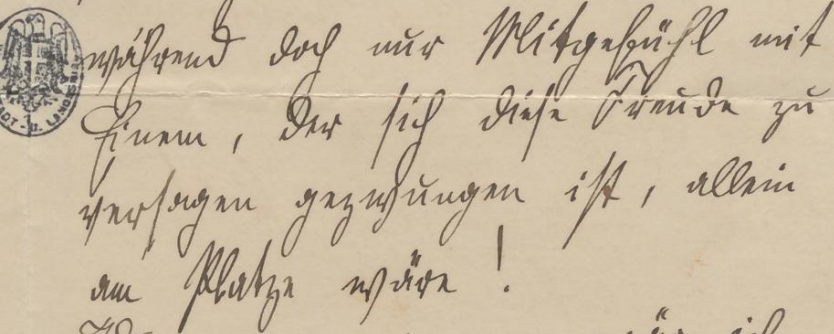 während doch nur Mitgefühl mit
Einem, der sich diese Freude zu
versagen gezwungen ist, allein
am Platze wäre!